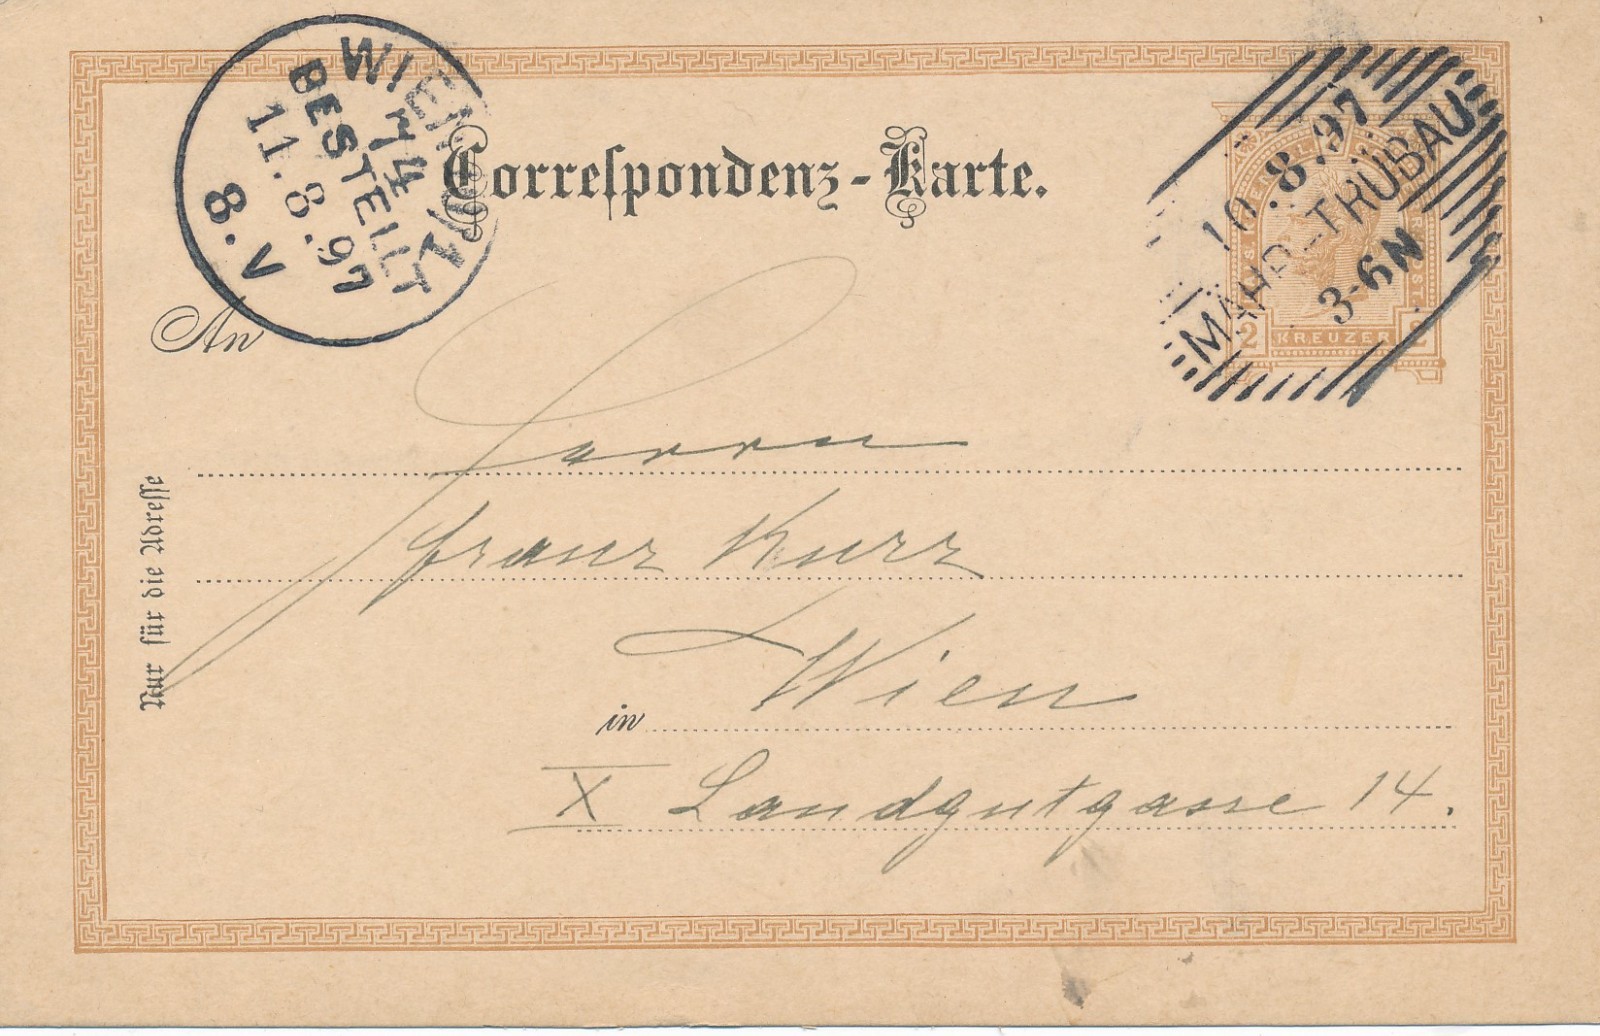 WIEN 10/1
74
BESTELLT
11.8.97
8.V
Correspondenz-Karte.
10.8.97
MÄHR-TRÜBAU
3-6N
2 KREUZER 2
An
Herrn
Franz Kurz
Nur für die Adresse
Wien
in
X Landgutgasse 14.